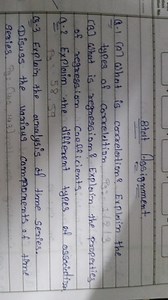 Stat Assignment
Q.1 (A) What is correlation? Explain the
types of correlation
(B) What is regression? Explain the properties
of regression coefficients.
Q.2 Explain the different types of association
Q.3 Explain the analysis of time series.
Discuss the various components of time
series.